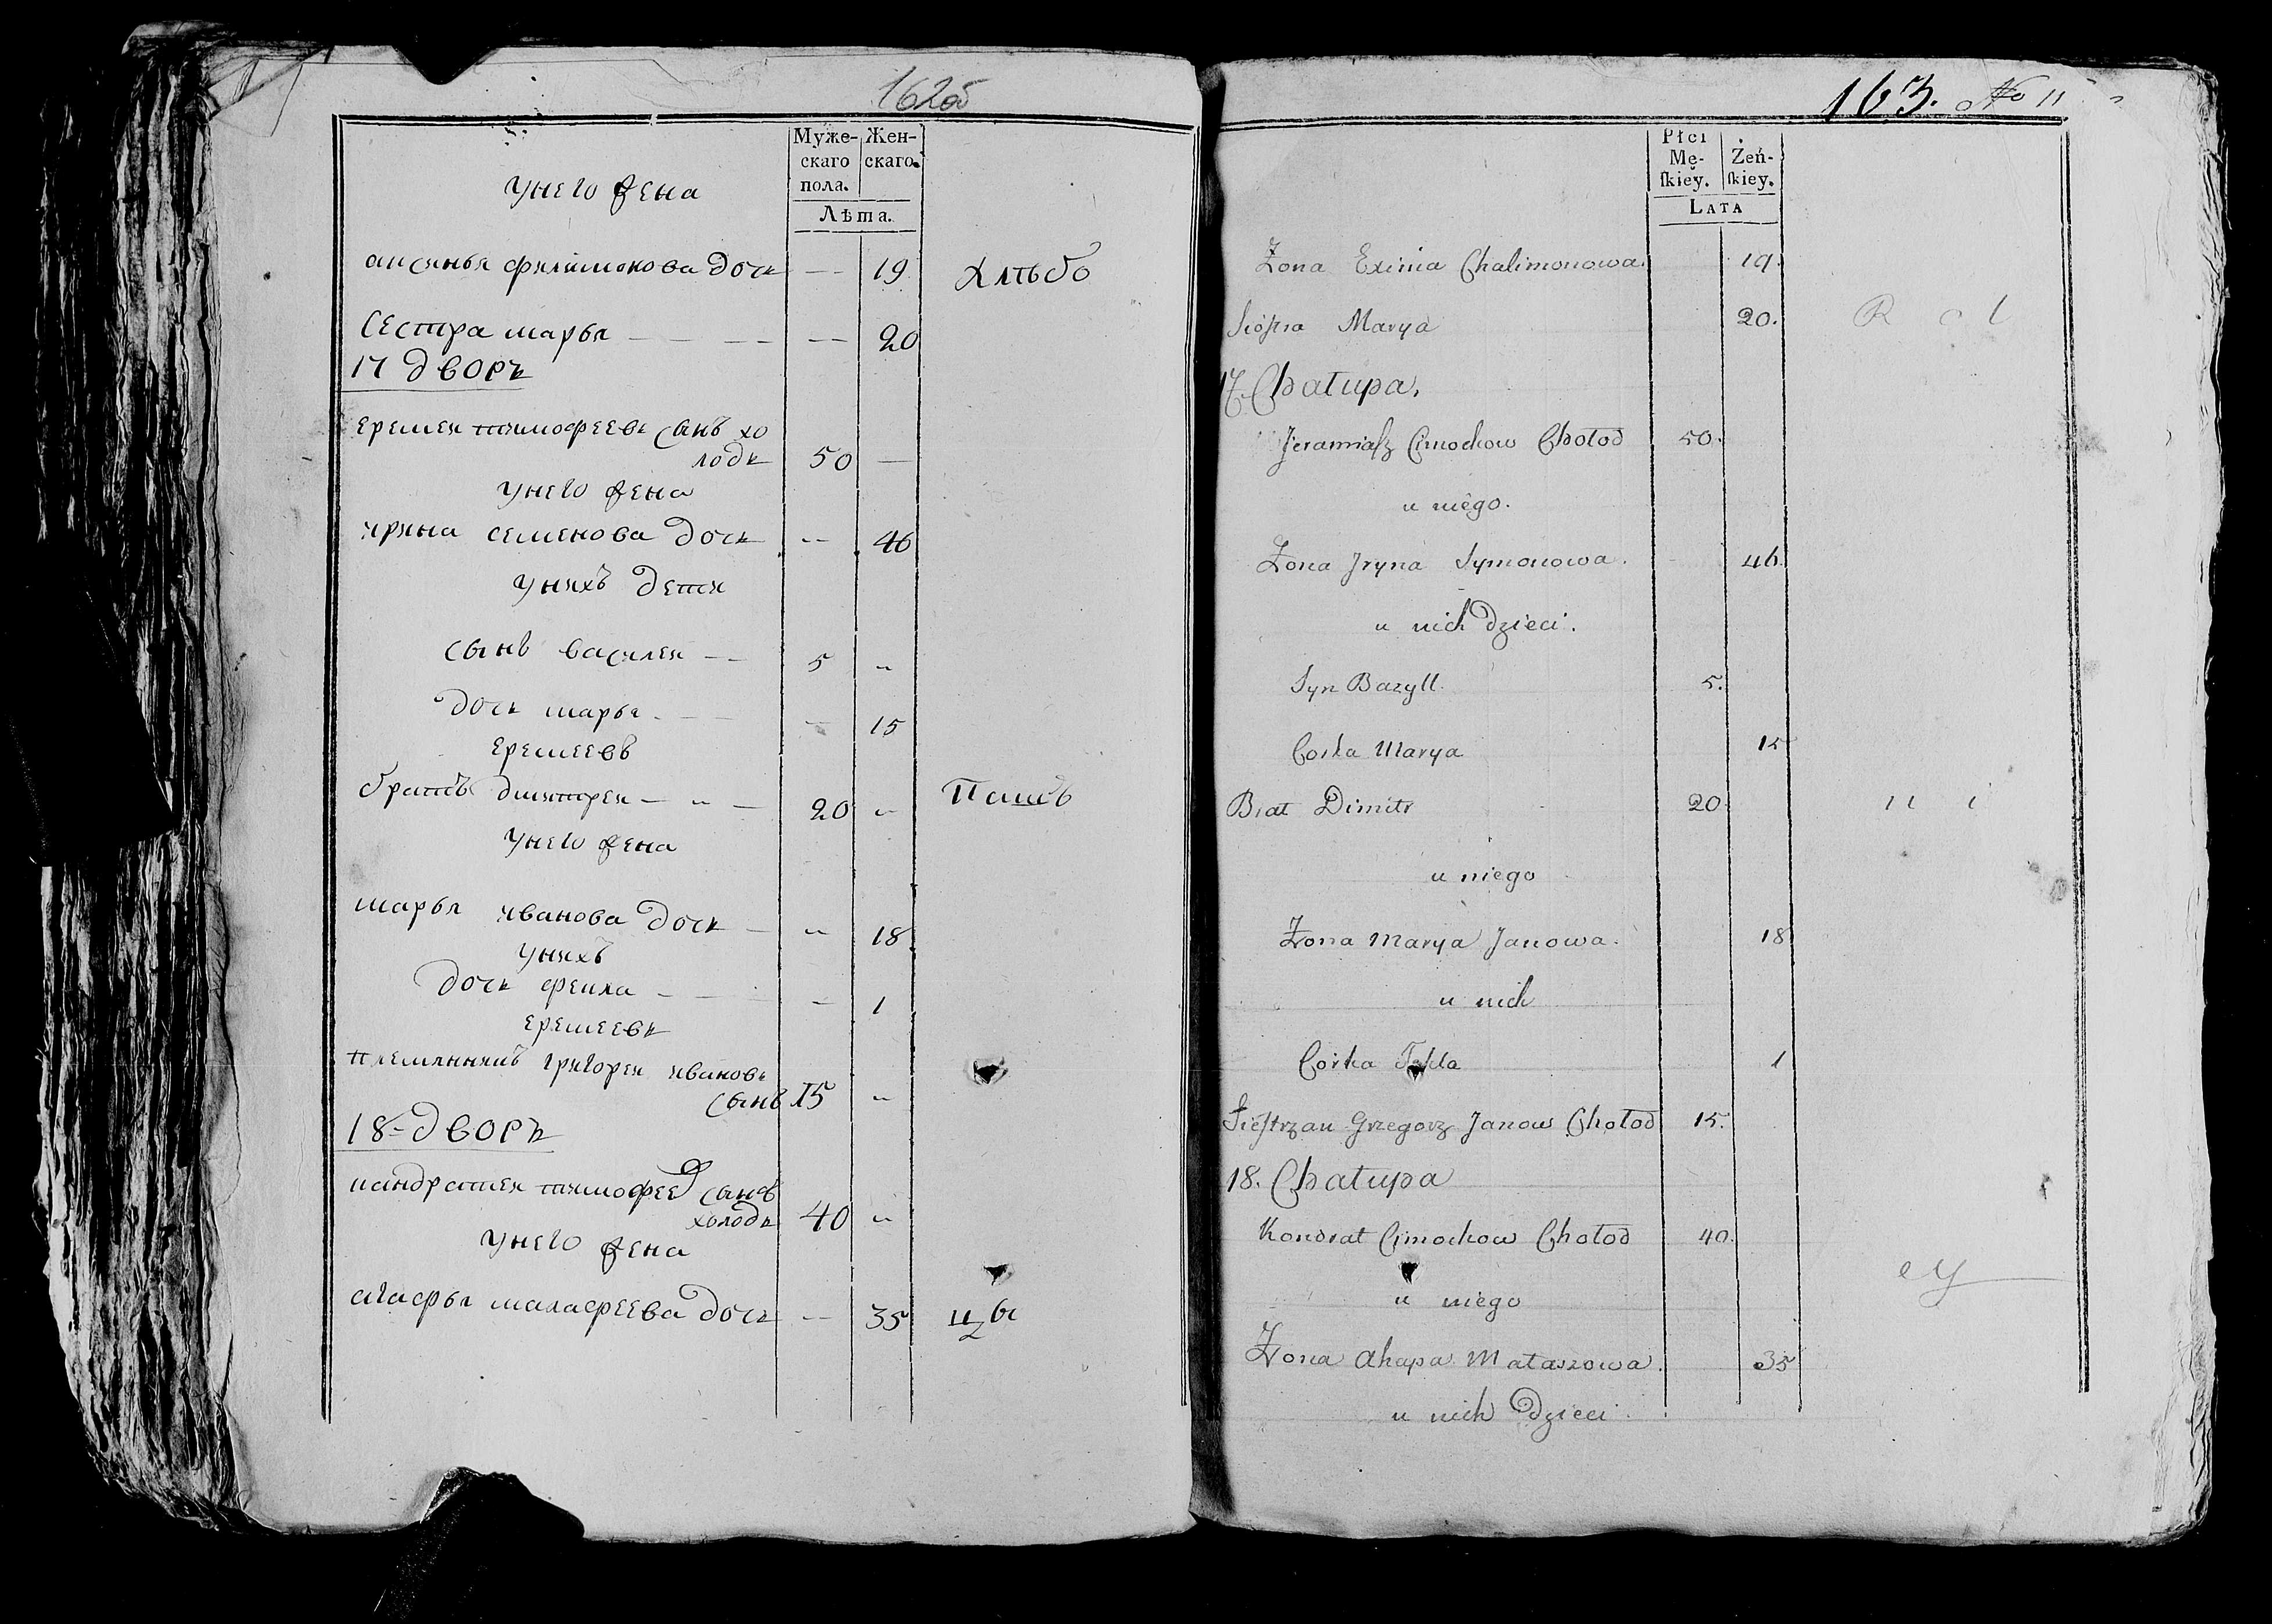 162об
Муже- Жен-
скаго скаго.
пола.
Лѣта.
унего жена
аксинья филимонова дочь — 19 Хлѣбо
сестра марья — — — — — 20
17 дворъ
еремей тимофеевъ сынъ хо
лодъ 50 —
унего жена
ирина семенова дочь — 46
унихъ дети
сынъ василей — 5 —
дочь марья — — 15
еремеевъ
братъ дмитрей — — — 20 — Пашъ
унего жена
марья иванова дочь — — 18
унихъ
дочь фекла — — 1
еремеевъ
племянникъ григорей ивановъ
сынъ 15 —
18 — дворъ
кандратей тимофеев сынъ
холодъ 40 —
унего жена
агафья малафеева дочь — 35 цы
163. No 11
Płci
Mę- Żeń-
ſkiey. ſkiey.
LATA
Żona Exinia Chalimonowa. 19.
Siostra Marya 20. R o l
17. Chałupa.
Jeramiasz Cimochow Chołod 50.
u niego.
Żona Jryna Symonowa. 46.
u nich dzieci.
Syn Bazyll. 5.
Corka Marya 15
Brat Dimitr 20. n i
u niego
Żona Marya Janowa. 18
u nich
Corka Tekla 1
Siestrzan Grzegorz Janow Chołod 15.
18. Chałupa
Kondrat Cimochow Chołod 40.
cy
u niego
Żona Ahapa Małaszowa. 35
u nich Dzieci.